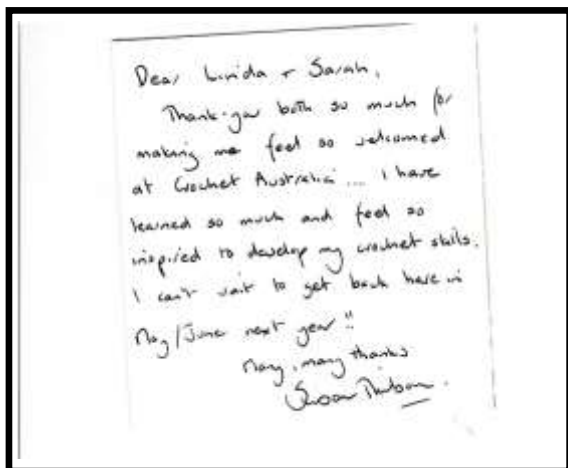 Dear Linda + Sarah,
Thank-you both so much for
making me feel so welcomed
at Crochet Australia .... I have
learned so much and feel so
inspired to develop my crochet skills.
I can't wait to get back here in
May/June next year!!
Many, many thanks
Susan